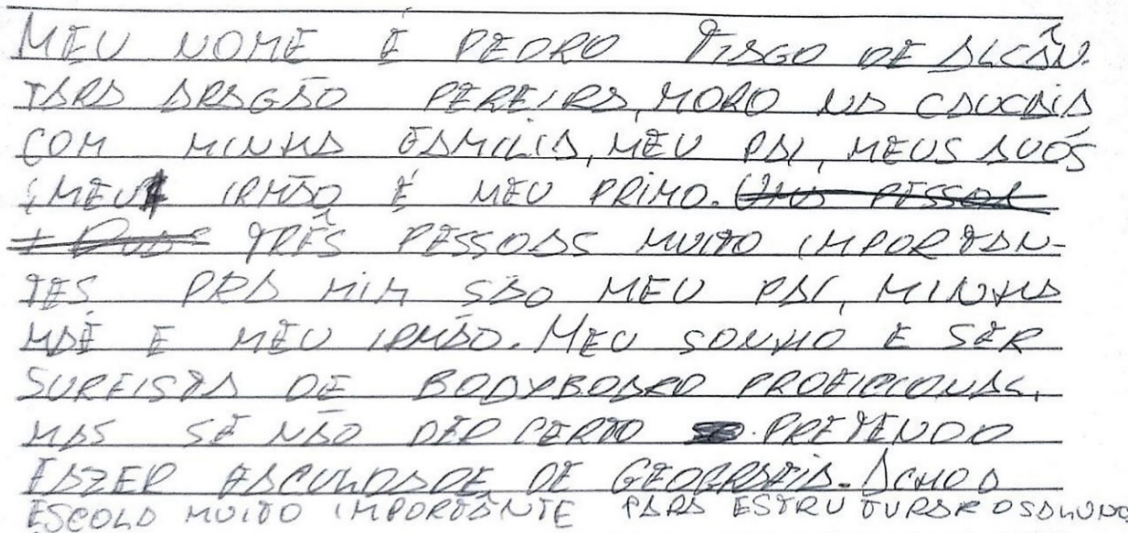 MEU NOME É PEDRO TIAGO DE ALCÂN-
TARA ARAGÃO PEREIRA, MORO NA CAUCAIA
COM MINHA FAMILIA, MEU PAI, MEUS AVÓS
, MEU IRMÃO É MEU PRIMO. UMA PESSOA
TRÊS PESSOAS MUITO IMPORTAN-
TES PRA MIM SÃO MEU PAI, MINHA
MÃE E MEU IRMÃO. MEU SONHO E SER
SURFISTA DE BODYBOARD PROFICIONAL,
MAS SE NÃO DER CERTO PRETENDO
FAZER FACULDADE DE GEOGRAFIA. ACHO A
ESCOLA MUITO IMPORTANTE PARA ESTRUTURAR OS ALUNOS